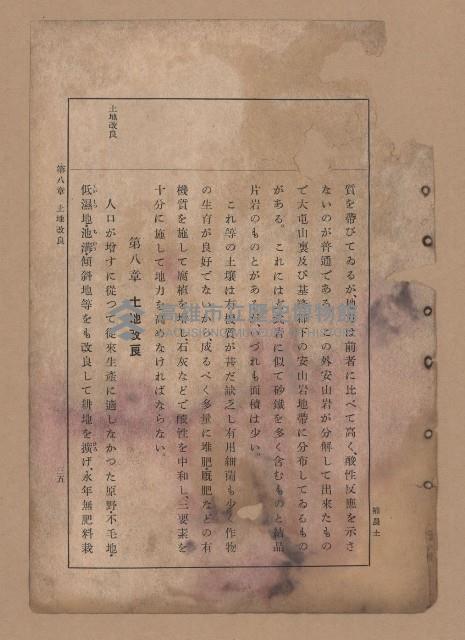 補農土
質を帶びてゐるが、地は前者に比べて高く、酸性反應を示さ
ないのが普通である。この外安山岩が分解して出來たもの
で大屯山裏及び基隆郡下の安山岩地帶に分布してゐるもの
がある。これには岩に似て砂鐵を多く含むものと結晶
片岩のものとがあづれも面積は少い。
これ等の土壤は有機質が甚だ缺乏し有用細菌も少く作物
の生育が良好でな成るべく多量に堆肥・廐肥などの有
機質を施して腐植を增し、石灰などで酸性を中和し、三要素を
十分に施して地力を高めなければならない。
第八章 土地改良
土地改良
人口が增すに從つて從來生產に適しなかつた原野・不毛地・
低濕地・池沼・傾斜地等をも改良して耕地を擴げ、永年無肥料栽
第八章 土地改良
三五
高雄市立歷史博物館
KAOHSIUNG MUSEUM OF HISTORY